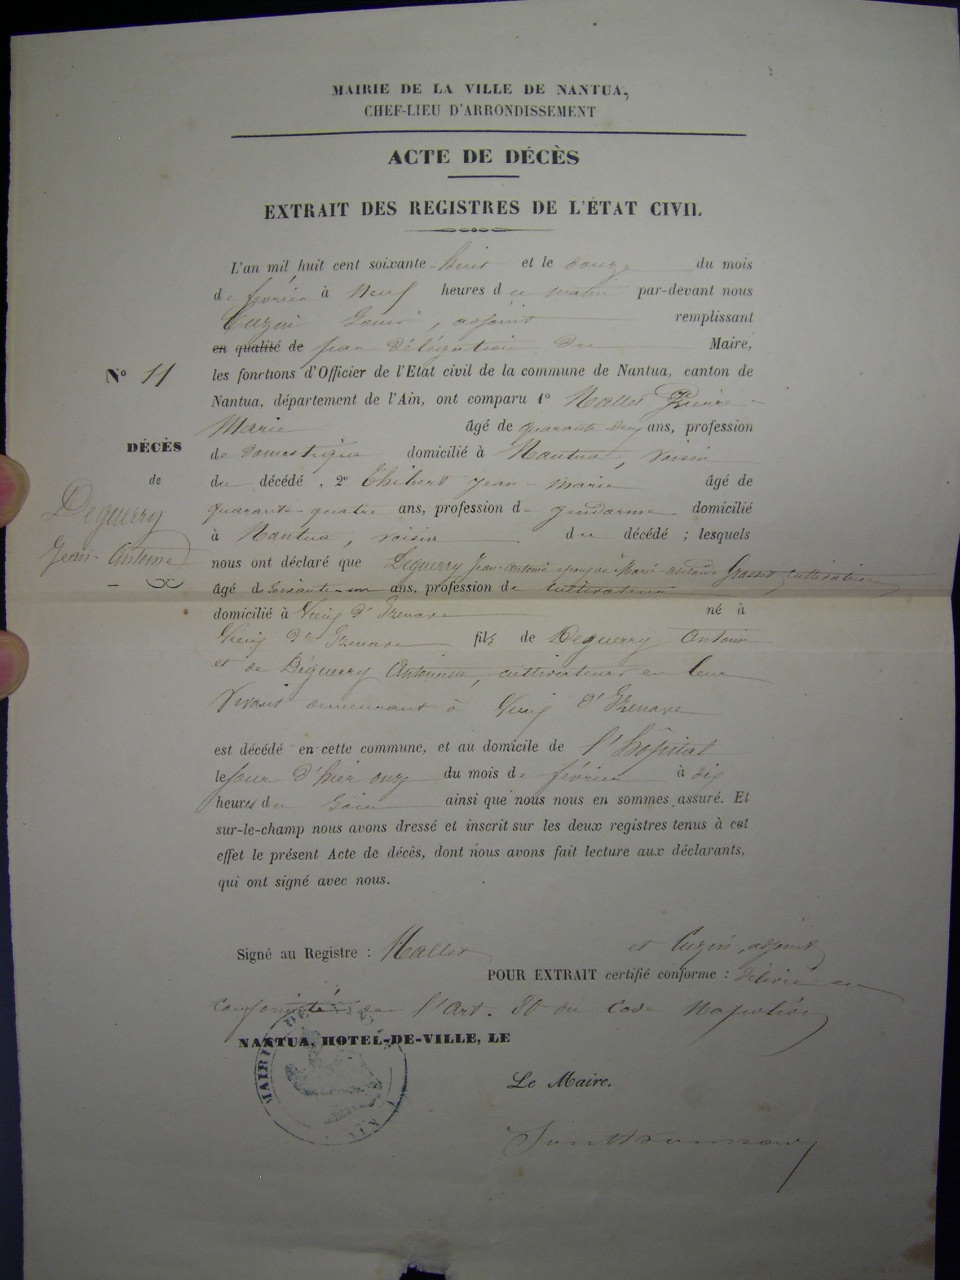 MAIRIE DE LA VILLE DE NANTUA,
CHEF-LIEU D'ARRONDISSEMENT
ACTE DE DÉCÈS
EXTRAIT DES REGISTRES DE L'ÉTAT CIVIL
L'an mil huit cent soixante huit et le douze du mois
de février à Neuf heures du matin par-devant nous
Cuzin Louis, adjoint remplissant
en qualité de par Délégation du Maire,
les fonctions d'Officier de l'Etat civil de la commune de Nantua, canton de
Nantua, département de l'Ain, ont comparu 1° Mallet Pierre
Marie âgé de quarante deux ans, profession
de domestique domicilié à Nantua, voisin
du décédé, 2° Thibert Jean-Marie âgé de
quarante quatre ans, profession de gendarme domicilié
à Nantua, voisin du décédé ; lesquels
nous ont déclaré que Déguerry Jean-Antoine époux de Marie-Antoinette cultivatrice
âgé de soixante-un ans, profession de cultivateur
domicilié à Vieu d'Izenave né à
Vieu d'Izenave fils de Déguerry Antoine
et de Déguerry Antoinette, cultivateurs en leur
vivant demeurant à Vieu d'Izenave
est décédé en cette commune, et au domicile de l'hôpital
le jour d'hier onze du mois de février à dix
heures du Soir ainsi que nous nous en sommes assuré. Et
sur-le-champ nous avons dressé et inscrit sur les deux registres tenus à cet
effet le présent Acte de décès, dont nous avons fait lecture aux déclarants,
qui ont signé avec nous.
N° 11
DÉCÈS
de
Deguerry
Jean-Antoine
Signé au Registre : Mallet et Cuzin, adjoint
POUR EXTRAIT certifié conforme : délivré en
conformité de l'Art. 80 du Code Napoléon
NANTUA, HOTEL-DE-VILLE, LE
Le Maire.
MAIRIE DE